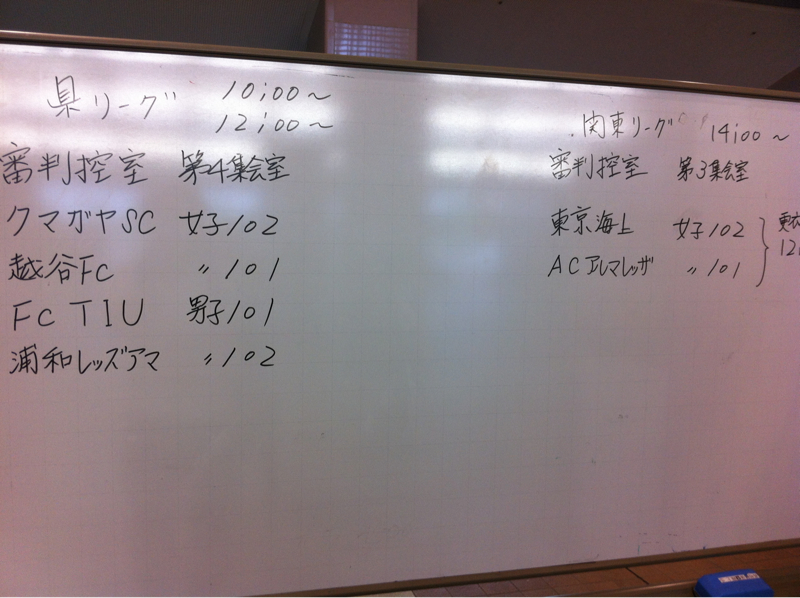 県リーグ 10:00～
12:00～
審判控室 第4集会室
クマガヤSC 女子102
越谷Fc 〃101
Fc TIU 男子101
浦和レッズアマ 〃102
関東リーグ 14:00～
審判控室 第3集会室
東京海上 女子102
ACアルマレッザ 〃101
更衣